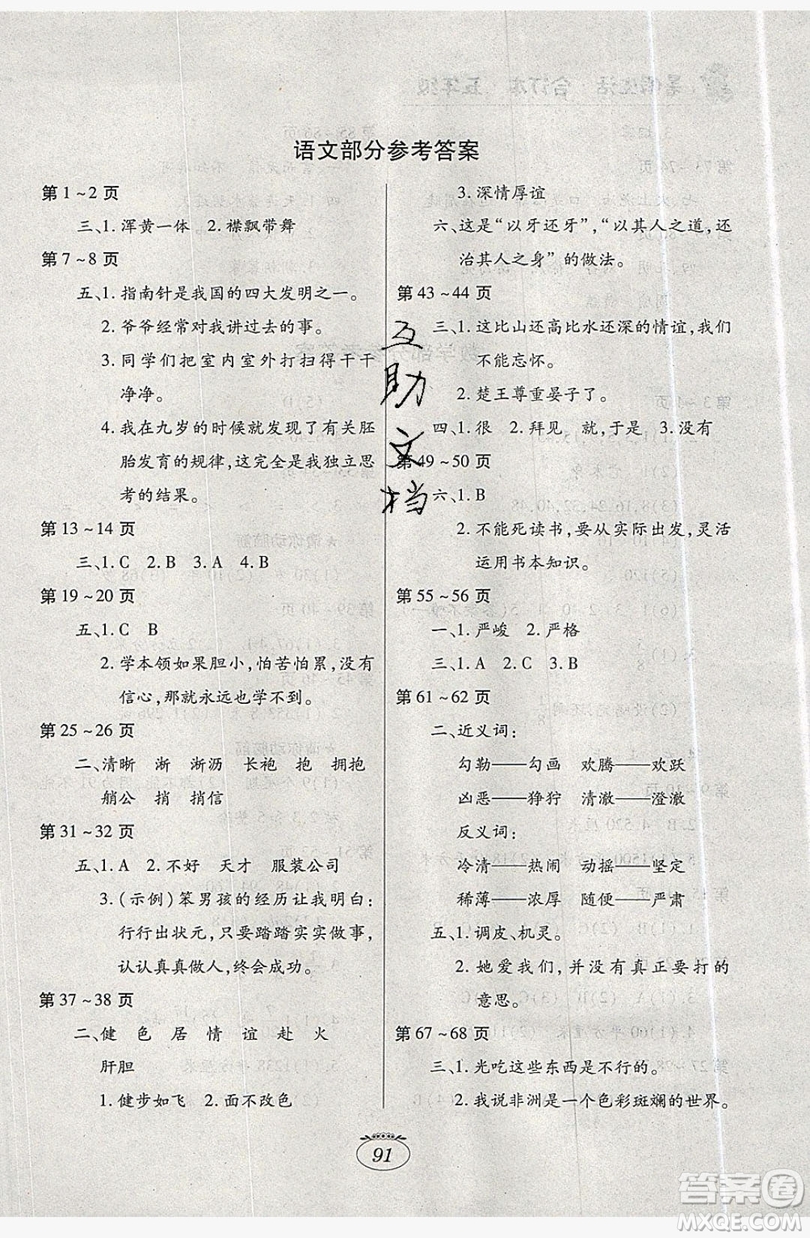 语文部分参考答案
第1~2页
三、1. 浑黄一体 2. 襟飘带舞
第7~8页
五、1. 指南针是我国的四大发明之一。
2. 爷爷经常对我讲过去的事。
3. 同学们把室内室外打扫得干干
净净。
4. 我在九岁的时候就发现了有关胚
胎发育的规律,这完全是我独立思
考的结果。
第13~14页
三、1. C 2. B 3. A 4. B
第19~20页
五、1. C B
2. 学本领如果胆小,怕苦怕累,没有
信心,那就永远也学不到。
第25~26页
二、清晰 渐 渐沥 长袍 抱 拥抱
艄公 捎 捎信
第31~32页
五、1. A 2. 不好 天才 服装公司
3. (示例)笨男孩的经历让我明白:
行行出状元,只要踏踏实实做事,
认认真真做人,终会成功。
第37~38页
二、健 色 居 情 谊 赴 火
肝胆
1. 健步如飞 2. 面不改色
3. 深情厚谊
六、这是“以牙还牙”,“以其人之道,还
治其人之身”的做法。
第43~44页
三、1. 这比山还高比水还深的情谊,我们
不能忘怀。
2. 楚王尊重晏子了。
四、1. 很 2. 拜见 就,于是 3. 没有
第49~50页
六、1. B
2. 不能死读书,要从实际出发,灵活
运用书本知识。
第55~56页
一、1. 严峻 2. 严格
三、1. A 2. C 3. B
第61~62页
二、近义词:
勾勒——勾画 欢腾——欢跃
凶恶——狰狞 清澈——澄澈
反义词:
冷清——热闹 动摇——坚定
稀薄——浓厚 随便——严肃
五、1. 调皮、机灵。
2. 她爱我们,并没有真正要打的
意思。
第67~68页
三、1. 光吃这些东西是不行的。
2. 我说非洲是一个色彩斑斓的世界。
互助文档
91
答案圈
MXQE.COM